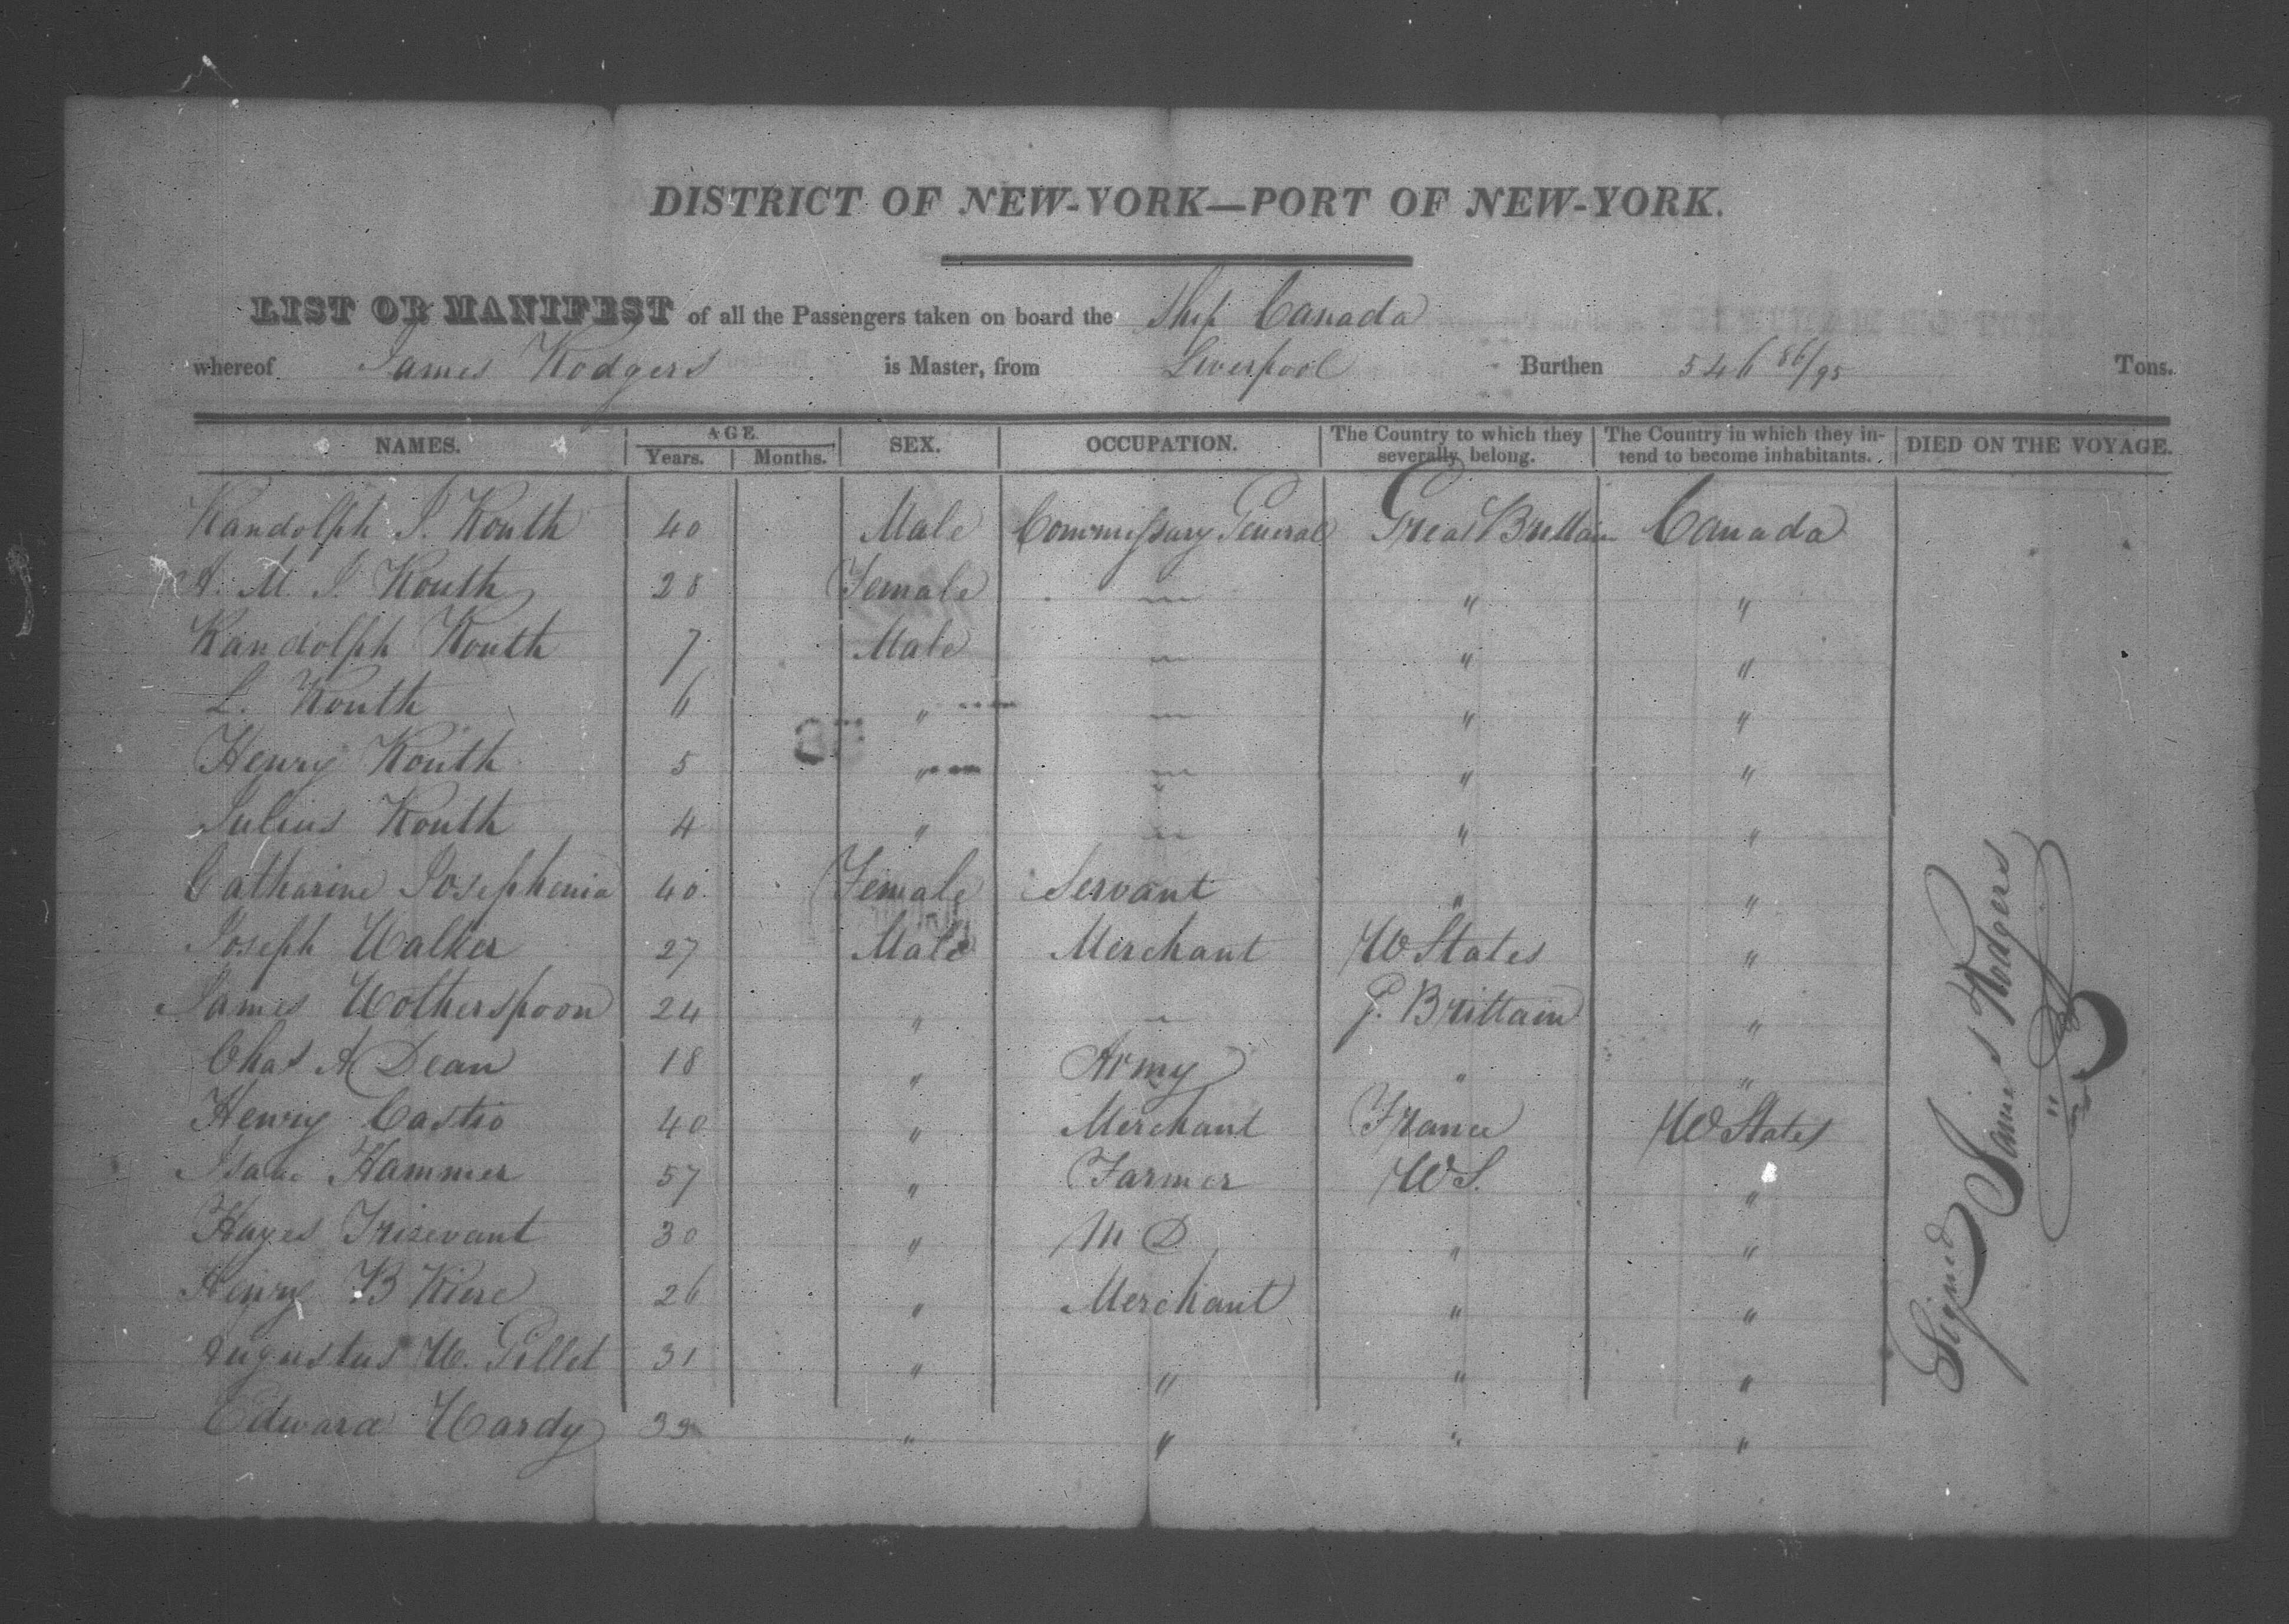 DISTRICT OF NEW-YORK—PORT OF NEW-YORK.
LIST OR MANIFEST of all the Passengers taken on board the Ship Canada
whereof James Rodgers is Master, from Liverpool Burthen 546 86/95 Tons.
NAMES. AGE. SEX. OCCUPATION. The Country to which they severally belong. The Country in which they intend to become inhabitants. DIED ON THE VOYAGE.
Years. Months.
Randolph I. Routh 40 Male Commissary General Great Brittain Canada
A. M. I. Routh 28 Female — " "
Randolph Routh 7 Male — " "
L. Routh 6 " — " "
Henry Routh 5 " — " "
Julius Routh 4 " — " "
Catharine Josephenia 40 Female Servant " "
Joseph Walker 27 Male Merchant U States "
James Wotherspoon 24 " — G. Brittain "
Chas A Dean 18 " Army " "
Henry Castro 40 " Merchant France U States
Isaac Hammer 57 " Farmer U S. "
Hayes 30 " M D " "
Henry B 26 " Merchant " "
Augustus W. Gillet 31 " " " "
Edward Hardy " " " "
Signed James Rodgers